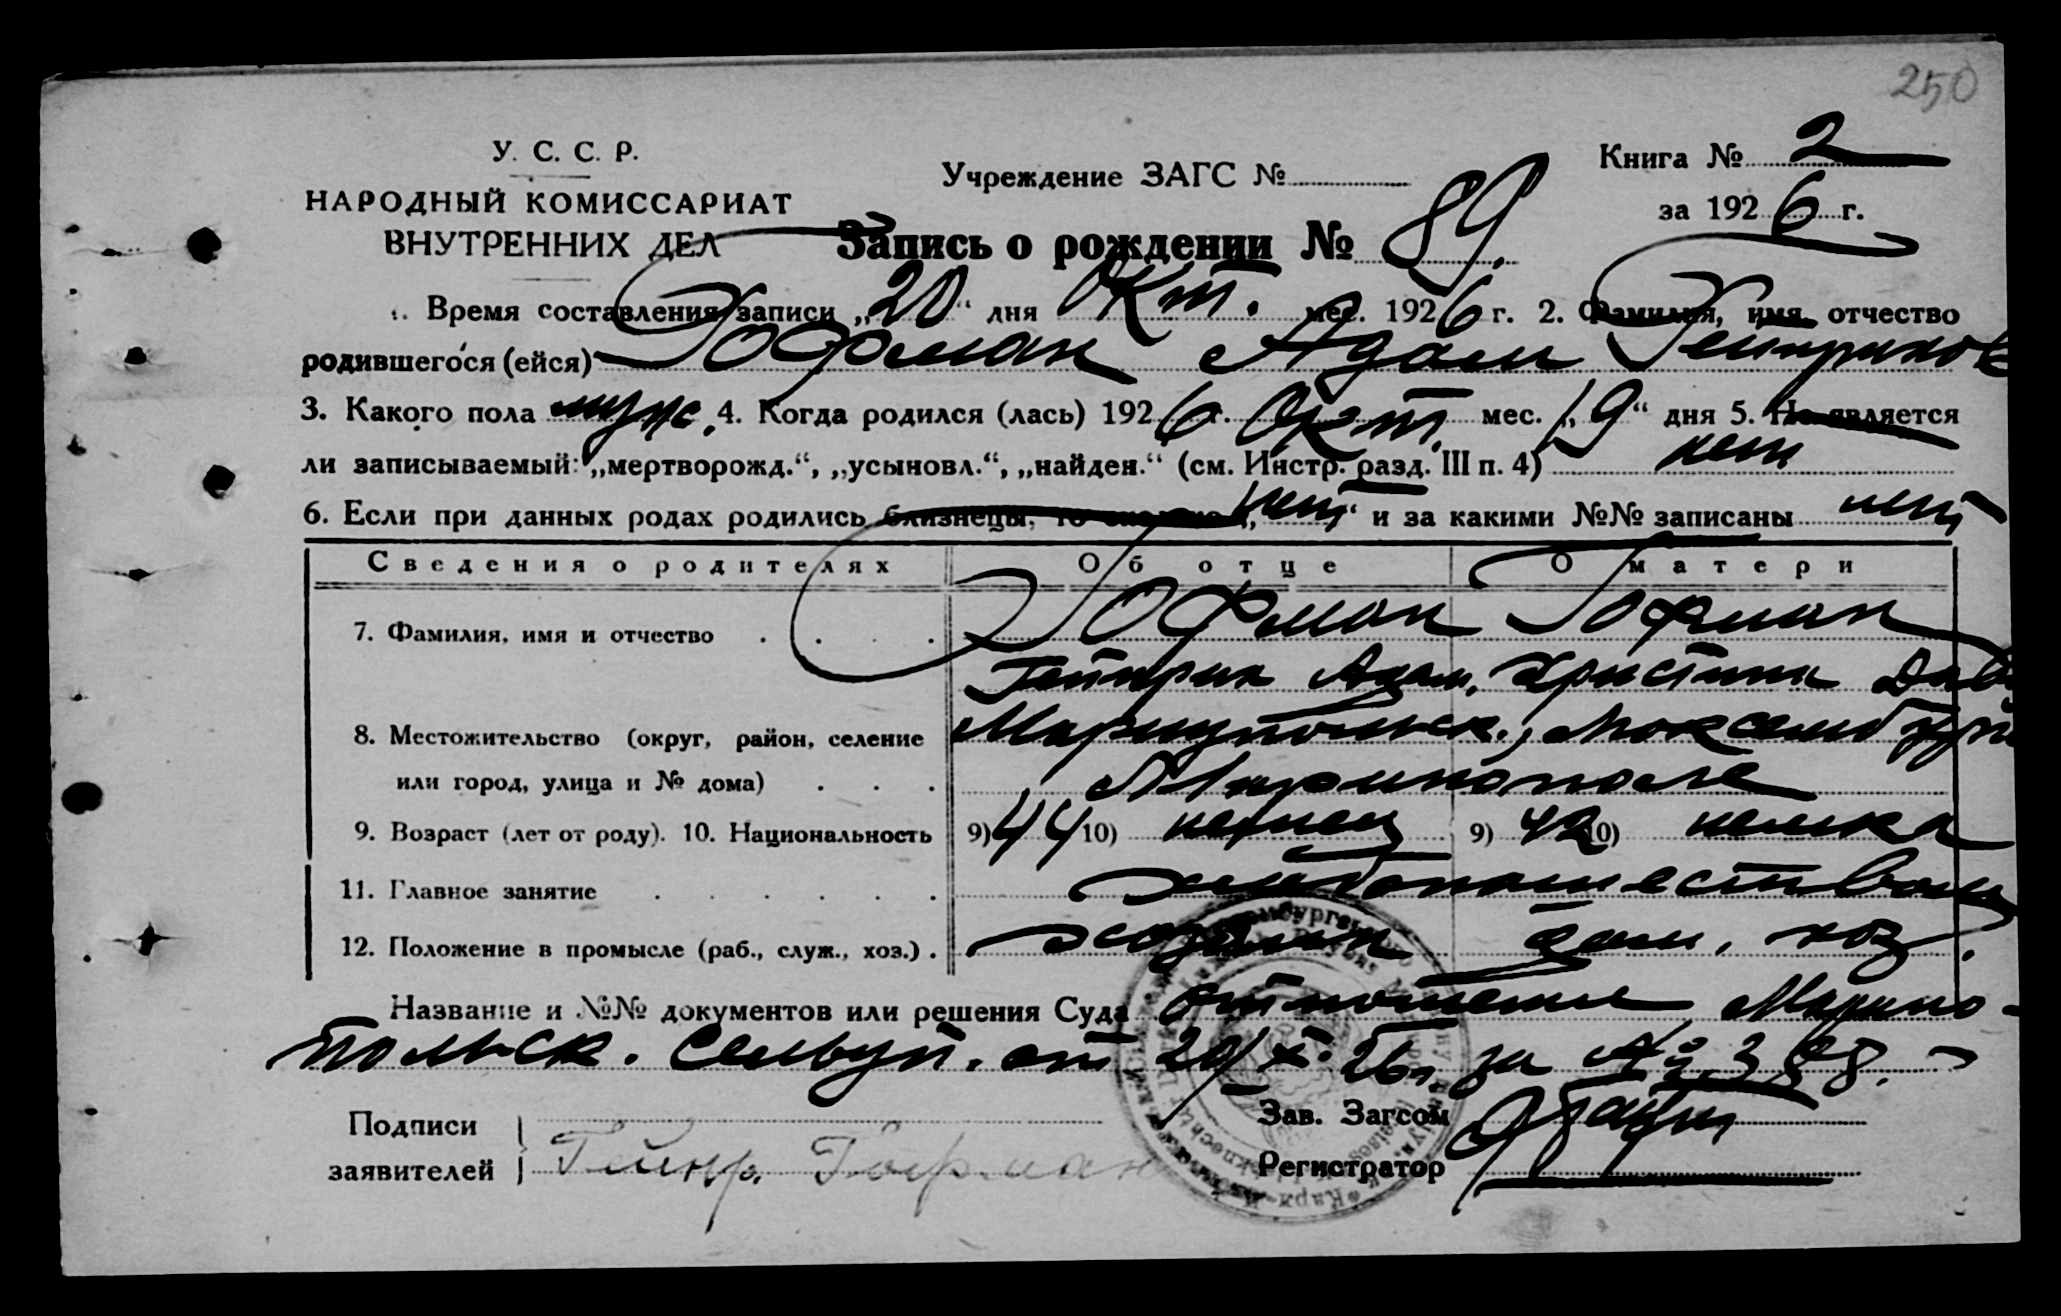 250
У. С. С. Р.
НАРОДНЫЙ КОМИССАРИАТ
ВНУТРЕННИХ ДЕЛ
Учреждение ЗАГС №
Книга № 2
за 1926 г.
Запись о рождении № 89.
Время составления записи „20“ дня Окт. мес. 1926 г. 2. Фамилия, имя, отчество
родившегося (ейся) Гофман Адам Гейнрихов
3. Какого пола муж. 4. Когда родился (лась) 1926 г. Окт. мес. „19“ дня 5. Не является
ли записываемый: „мертворожд.“, „усыновл.“, „найден.“ (см. Инстр. разд. III п. 4) нет
6. Если при данных родах родились близнецы, то сколько „нет“ и за какими №№ записаны нет
Сведения о родителях Об отце О матери
7. Фамилия, имя и отчество . . . . Гофман Гофман
Гейнрих Адам. Христина Дав
8. Местожительство (округ, район, селение Мариупольск.,
или город, улица и № дома) . . . Маринополе
9. Возраст (лет от роду). 10. Национальность 9) 44 10) немец 9) 42 10) немка
11. Главное занятие . . . . . .
12. Положение в промысле (раб., служ., хоз.) . хозяин дом. хоз.
Название и №№ документов или решения Суда отношение Марино-
польск. от 20/X-26 г. за № 388.
Подписи
заявителей Гейнр. Гофман
Зав. Загсом
Регистратор